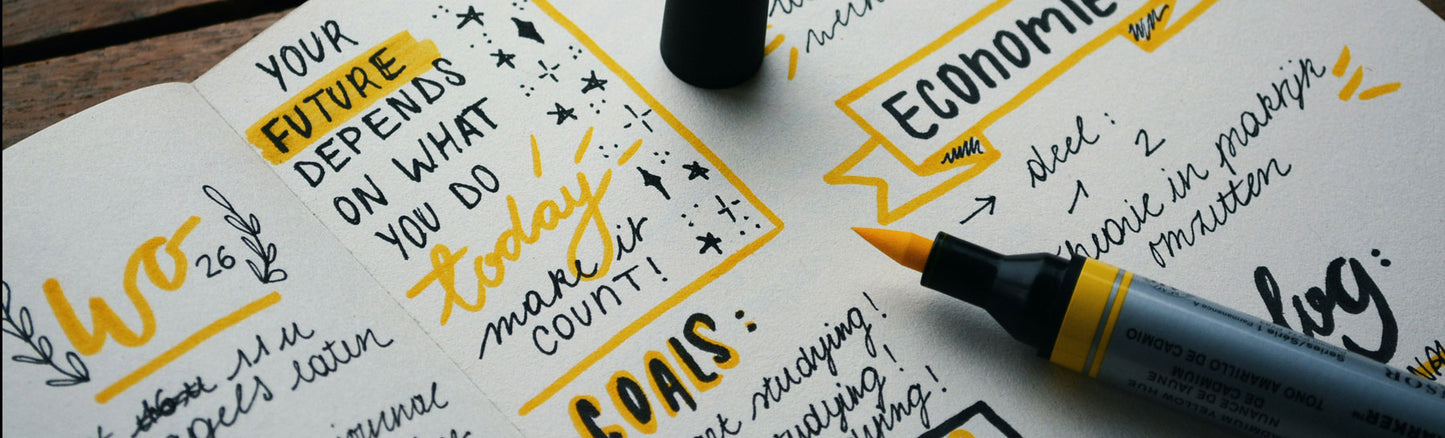 YOUR
FUTURE
DEPENDS
ON WHAT
YOU DO
today
make it
COUNT!
wo 26
11 u
laten
journal
GOALS:
studying!
studying!
ECONOMIE
→ deel:
1 2
theorie in praktijk
omzetten
log:
Series/Série 1 Permanence
CADMIUM YELLOW HUE
NUANCE DE JAUNE
DE CADMIUM
TONO AMARILLO DE CADMIO
MARKER™